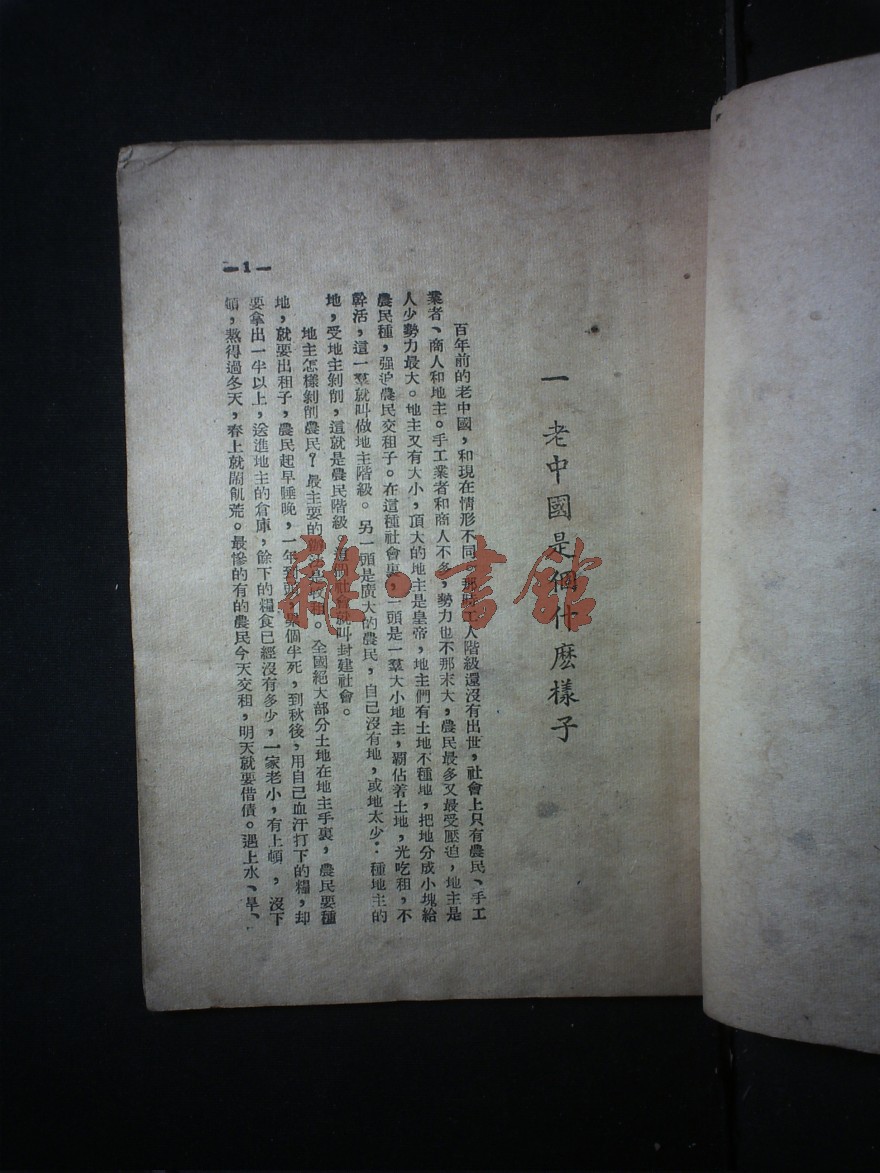 一 老中國是個什麽樣子
百年前的老中國，和現在情形不同，那時工人階級還沒有出世，社會上只有農民、手工
業者、商人和地主。手工業者和商人不多，勢力也不那末大，農民最多又最受壓迫，地主是
人少勢力最大。地主又有大小，頂大的地主是皇帝，地主們有土地不種地，把地分成小塊給
農民種，强迫農民交租子。在這種社會裏，一頭是一羣大小地主，霸佔着土地，光吃租，不
幹活，這一羣就叫做地主階級。另一頭是廣大的農民，自己沒有地，或地太少；種地主的
地，受地主剝削，這就是農民階級 這個社會就叫封建社會。
地主怎樣剝削農民？最主要的辦法是收租。全國絕大部分土地在地主手裏，農民要種
地，就要出租子，農民起早睡晚，一年到頭，累個半死，到秋後，用自己血汗打下的糧，却
要拿出一半以上，送進地主的倉庫，餘下的糧食已經沒有多少，一家老小，有上頓，沒下
頓，熬得過冬天，春上就鬧飢荒。最慘的有的農民今天交租，明天就要借債。遇上水、旱、
—1—
雜·書館